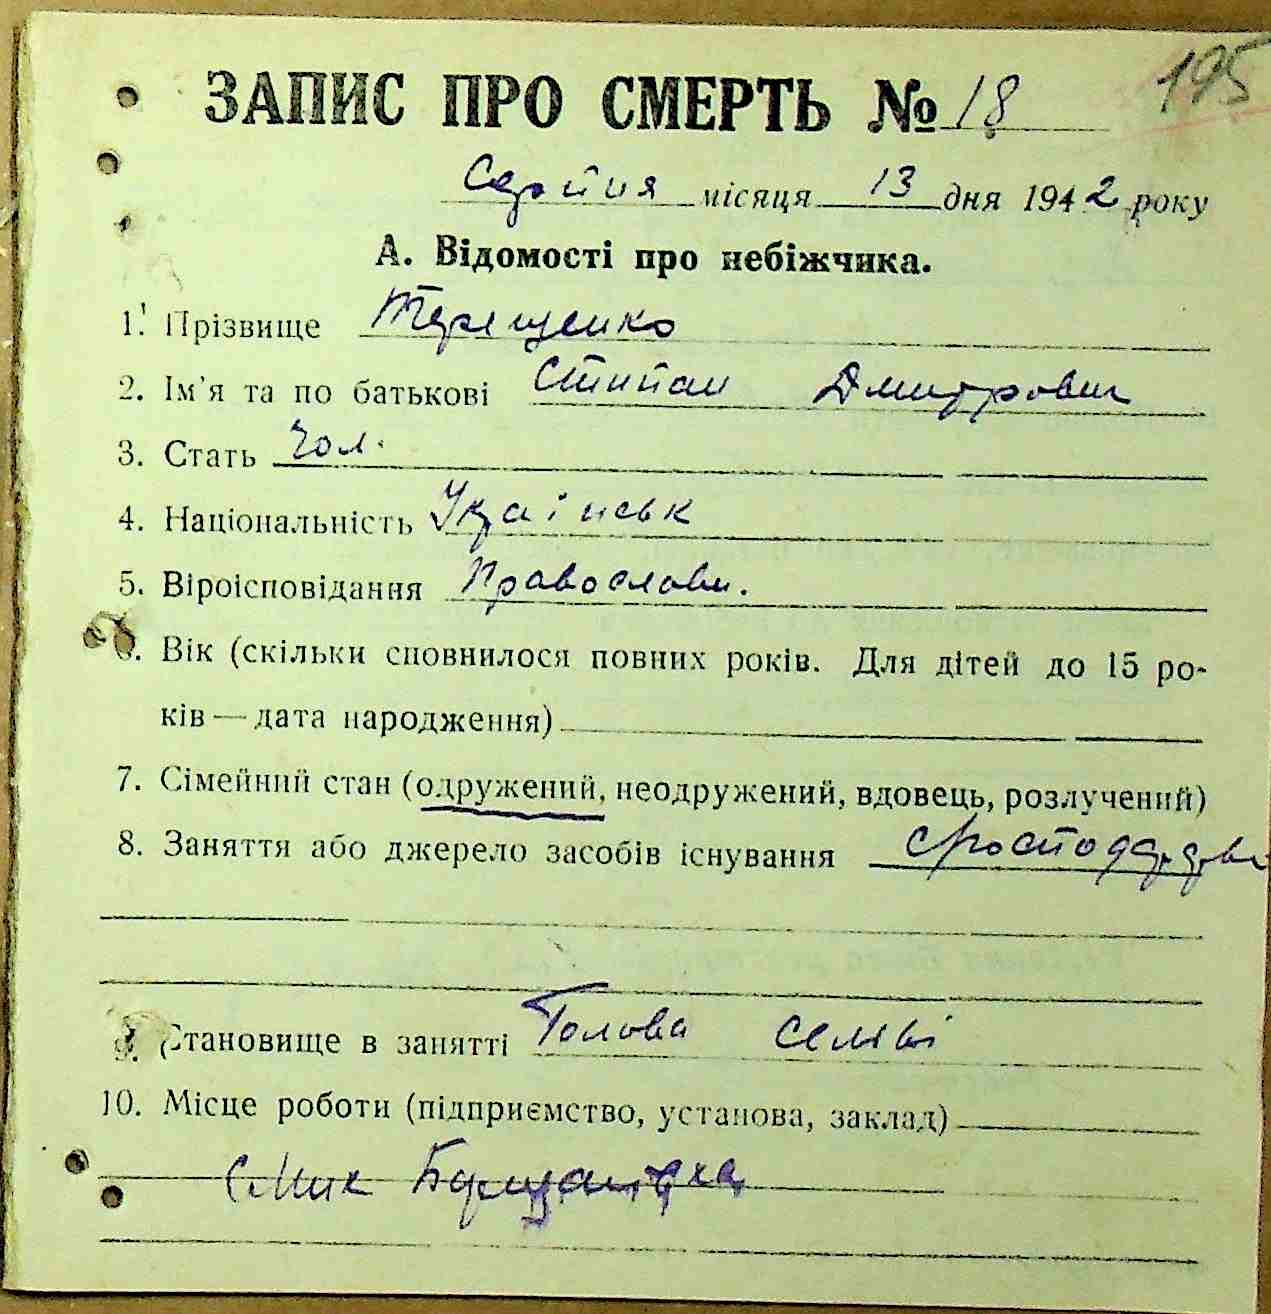 195
ЗАПИС ПРО СМЕРТЬ № 18
Серпня місяця 13 дня 1942 року
А. Відомості про небіжчика.
1. Прізвище Терещенко
2. Ім'я та по батькові Степан Дмитрович
3. Стать Чол.
4. Національність Українськ
5. Віроісповідання Православн.
6. Вік (скільки сповнилося повних років. Для дітей до 15 ро-
ків — дата народження)
7. Сімейний стан (одружений, неодружений, вдовець, розлучений)
8. Заняття або джерело засобів існування
9. Становище в занятті Голова
10. Місце роботи (підприємство, установа, заклад)